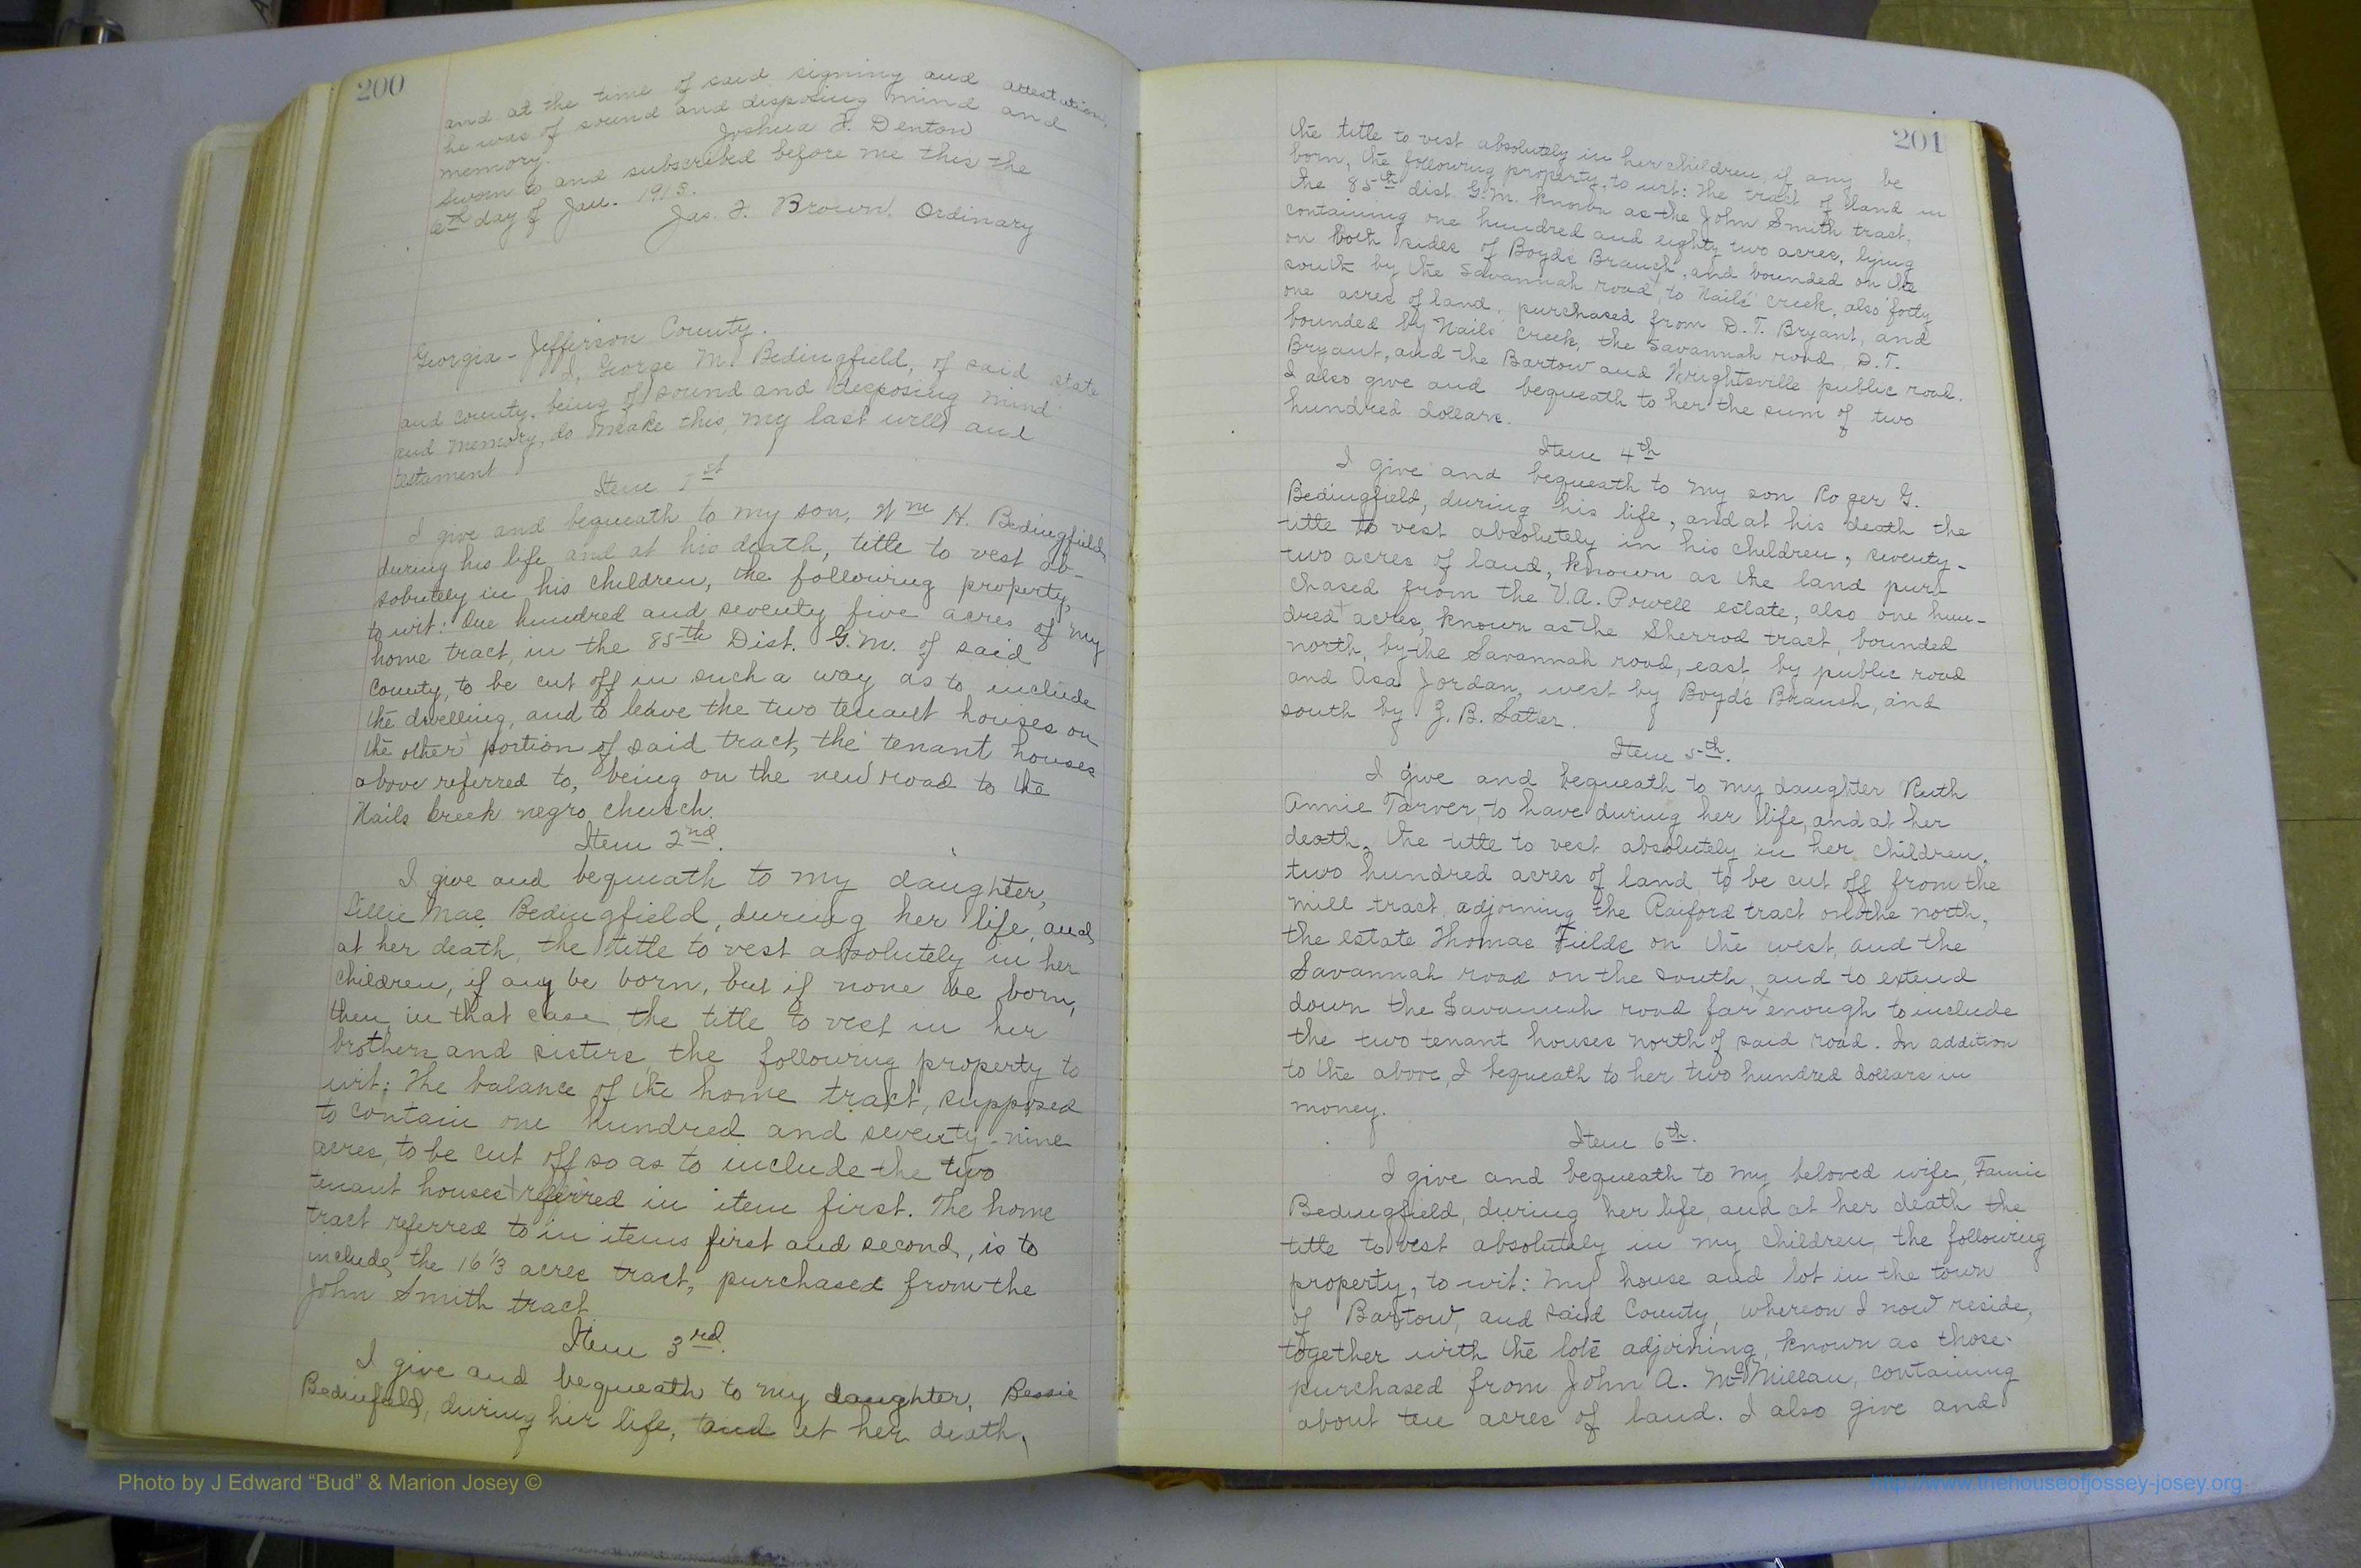 200
and at the time of said signing and attestation,
he was of sound and disposing mind and
memory.
Joshua F. Denton
Sworn to and subscribed before me this the
6th day of Jan. 1913.
Jas. F. Brown, Ordinary
Georgia - Jefferson County.
I, George M. Bedingfield, of said state
and county, being of sound and desposing mind
and memory, do make this, my last will and
testament
Item 1st
I give and bequeath to my son, Wm H. Bedingfield,
during his life and at his death, title to vest ab-
solutely in his children, the following property,
to wit: One hundred and seventy five acres of my
home tract, in the 85th Dist. G.M. of said
County, to be cut off in such a way as to include
the dwelling, and to leave the two tenant houses on
the other portion of said tract, the tenant houses
above referred to, being on the new road to the
Nails Creek negro church.
Item 2nd.
I give and bequeath to my daughter,
Lillie Mae Bedingfield, during her life, and
at her death, the title to vest absolutely in her
children, if any be born, but if none be born,
then in that case the title to vest in her
brothers and sisters, the following property to
wit: The balance of the home tract, supposed
to contain one hundred and seventy-nine
acres, to be cut off so as to include the two
tenant houses referred in item first. The home
tract referred to in items first and second, is to
include the 16 1/3 acres tract, purchased from the
John Smith tract
Item 3rd.
I give and bequeath to my daughter, Bessie
Bedinfield, during her life, and at her death,
201
the title to vest absolutely in her children, if any be
born, the following property, to wit: The tract of land in
the 85th dist. G.M. known as the John Smith tract,
containing one hundred and eighty two acres, lying
on both sides of Boyds Branch, and bounded on the
south by the Savannah road, to Nails' creek, also forty
one acres of land, purchased from D.T. Bryant, and
bounded by Nails' Creek, the Savannah road, D.T.
Bryant, and the Bartow and Wrightsville public road.
I also give and bequeath to her the sum of two
hundred dollars.
Item 4th
I give and bequeath to my son Roger G.
Bedingfield, during his life, and at his death the
title to vest absolutely in his children, seventy-
two acres of land, known as the land pur-
chased from the V.A. Powell estate, also one hun-
dred acres, known as the Sherrod tract, bounded
north, by the Savannah road, east by public road
and Asa Jordan, west by Boyd's Branch, and
south by J. B. Salter.
Item 5th.
I give and bequeath to my daughter Ruth
Annie Tarver, to have during her life, and at her
death, the title to vest absolutely in her children,
two hundred acres of land, to be cut off from the
mill tract, adjoining the Raiford tract on the north,
the estate Thomas Fields on the west, and the
Savannah road on the south, and to extend
down the Savannah road far enough to include
the two tenant houses north of said road. In addition
to the above, I bequeath to her two hundred dollars in
money.
Item 6th.
I give and bequeath to my beloved wife, Fannie
Bedingfield, during her life, and at her death the
title to vest absolutely in my children, the following
property, to wit: My house and lot in the town
of Bartow, and said County, whereon I now reside,
together with the lots adjoining, known as those
purchased from John A. McMillan, containing
about ten acres of land. I also give and
Photo by J Edward “Bud” & Marion Josey ©
http://www.thehouseofjossey-josey.org